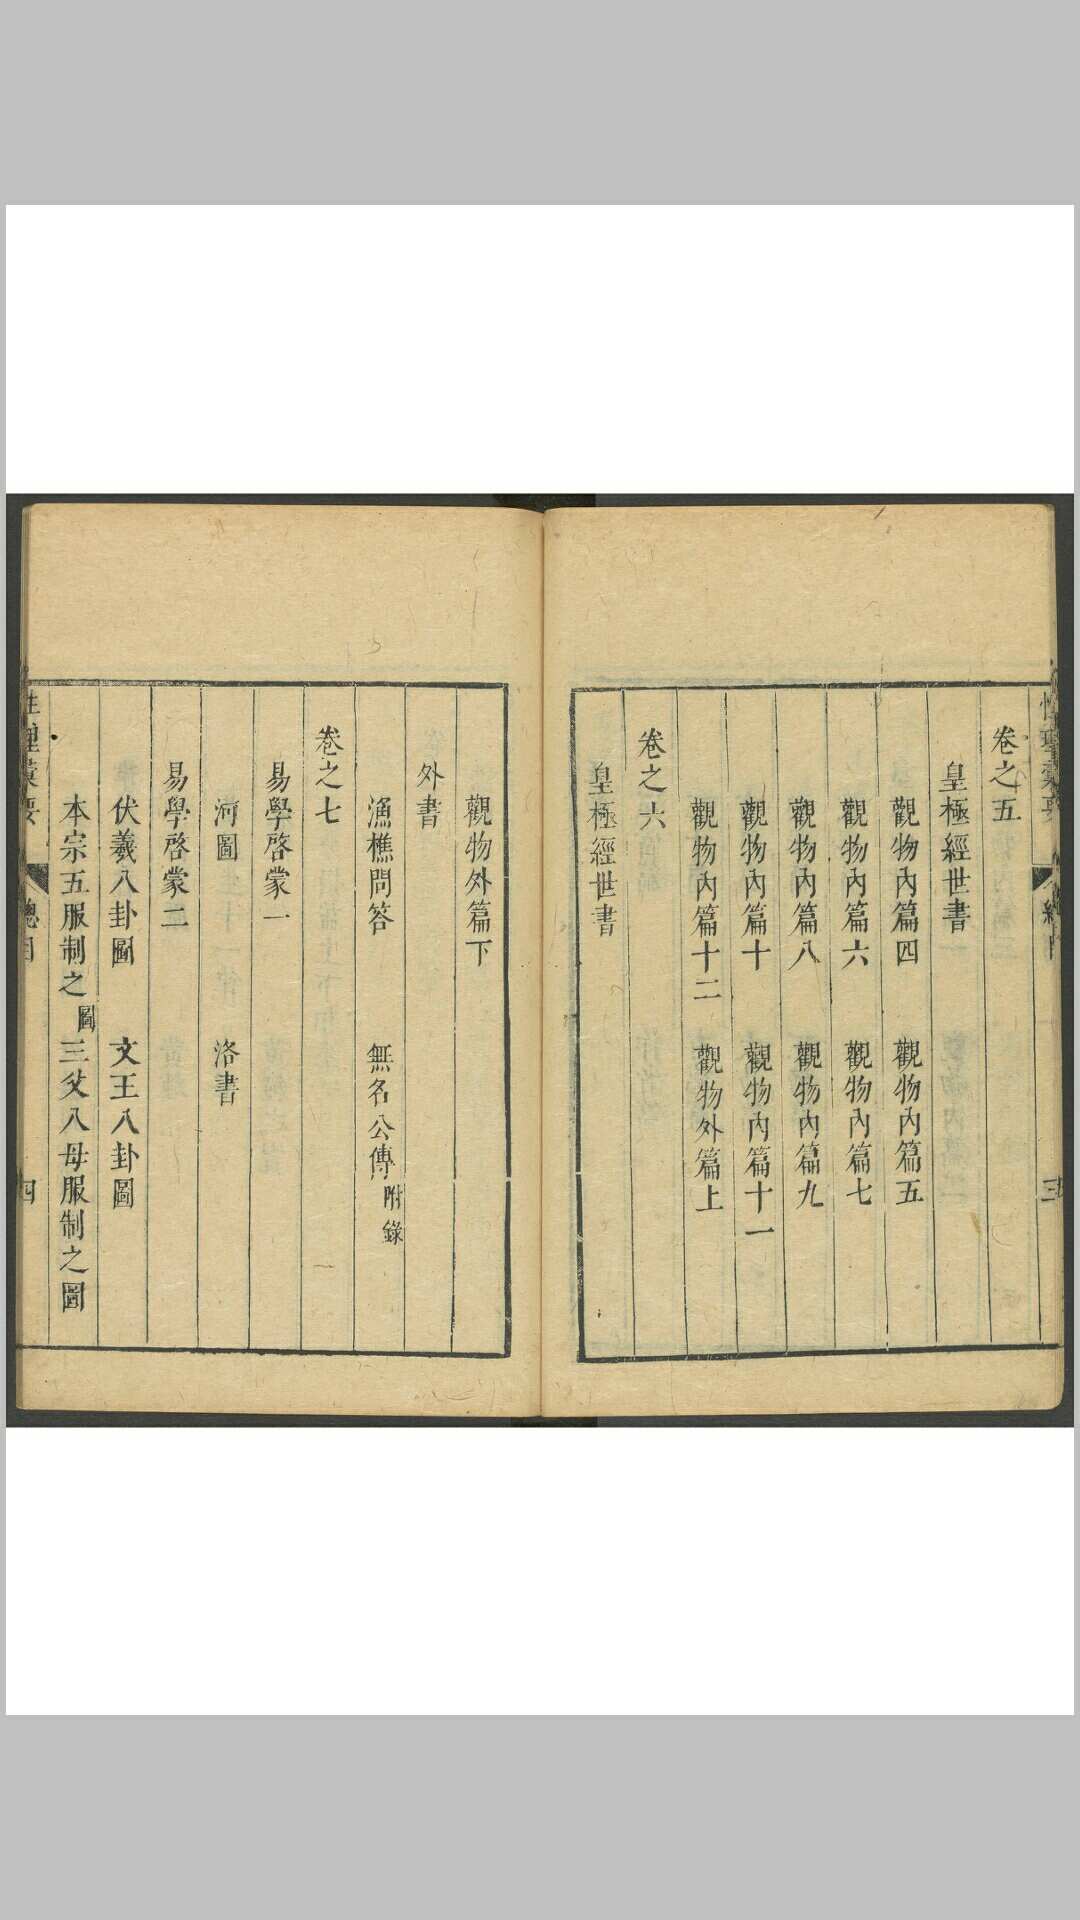 卷之五
皇極經世書
觀物內篇四　觀物內篇五
觀物內篇六　觀物內篇七
觀物內篇八　觀物內篇九
觀物內篇十　觀物內篇十一
觀物內篇十二　觀物外篇上
卷之六
皇極經世書
三
觀物外篇下
外書
漁樵問答　無名公傳附錄
卷之七
易學啓蒙一
河圖　洛書
易學啓蒙二
伏羲八卦圖　文王八卦圖
本宗五服制之圖　三父八母服制之圖
四